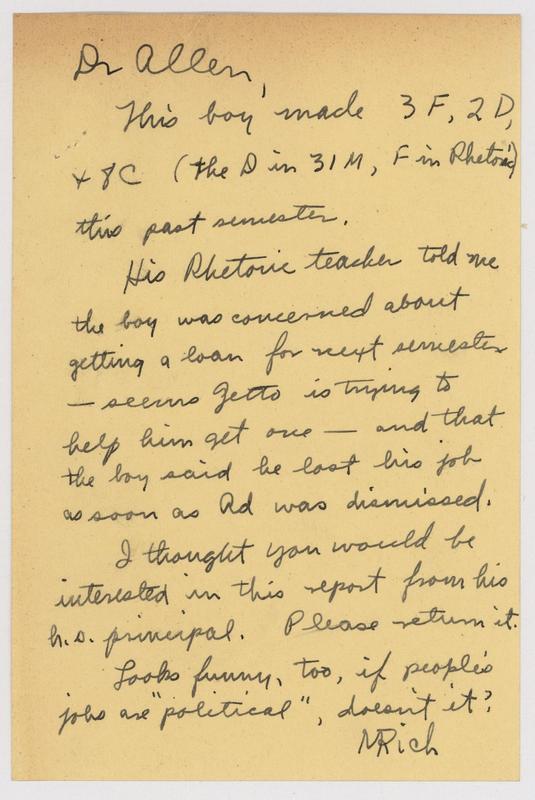 Dr Allen,
This boy made 3 F, 2 D,
+ 8C (the D in 31M, F in Rhetoric)
this past semester.
His Rhetoric teacher told me
the boy was concerned about
getting a loan for next semester
— seems Zetto is trying to
help him get one — and that
the boy said he lost his job
as soon as Ad was dismissed.
I thought you would be
interested in this report from his
h.s. principal. Please return it.
Looks funny, too, if people's
jobs are "political", doesn't it?
MRich